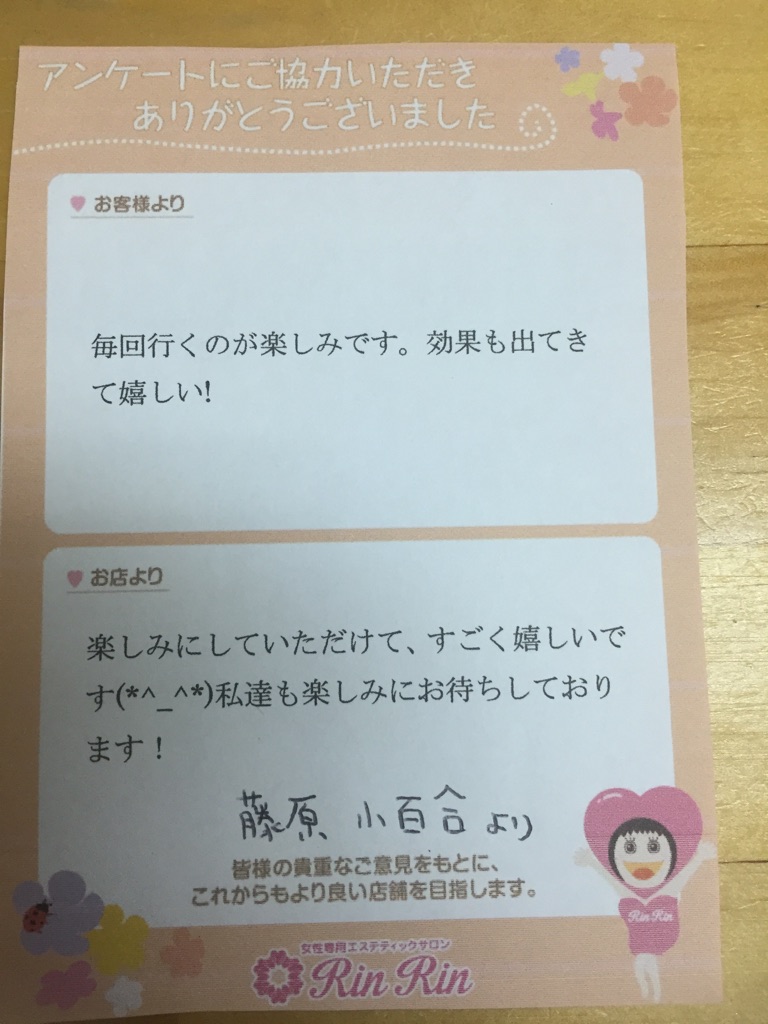 アンケートにご協力いただき
ありがとうございました
お客様より
毎回行くのが楽しみです。効果も出てき
て嬉しい!
お店より
楽しみにしていただけて、すごく嬉しいで
す(*^_^*)私達も楽しみにお待ちしており
ます！
藤原 小百合より
皆様の貴重なご意見をもとに、
これからもより良い店舗を目指します。
Rin Rin
女性専用エステティックサロン
Rin Rin